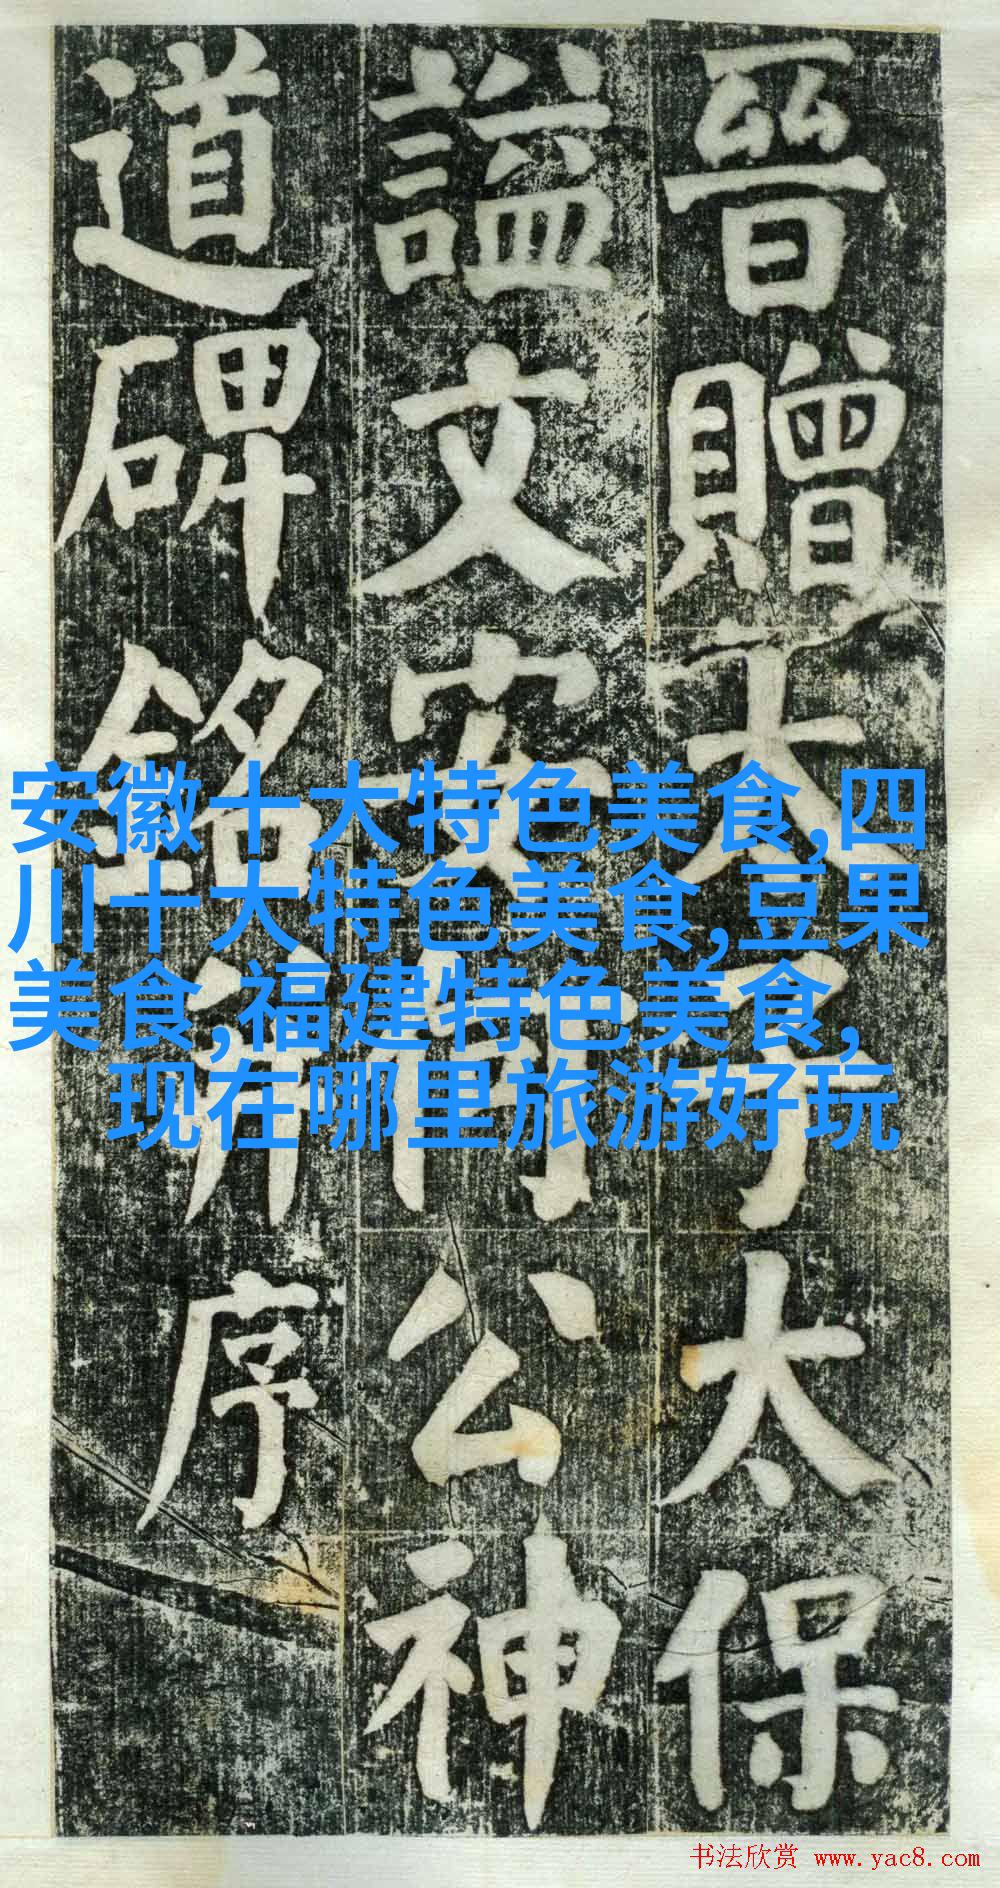 晉贈太子太保
謚文安何公神
道碑銘并序
安徽十大特色美食,四
川十大特色美食,豆果
美食,福建特色美食,
现在哪里旅游好玩
书法欣赏 www.yac8.com